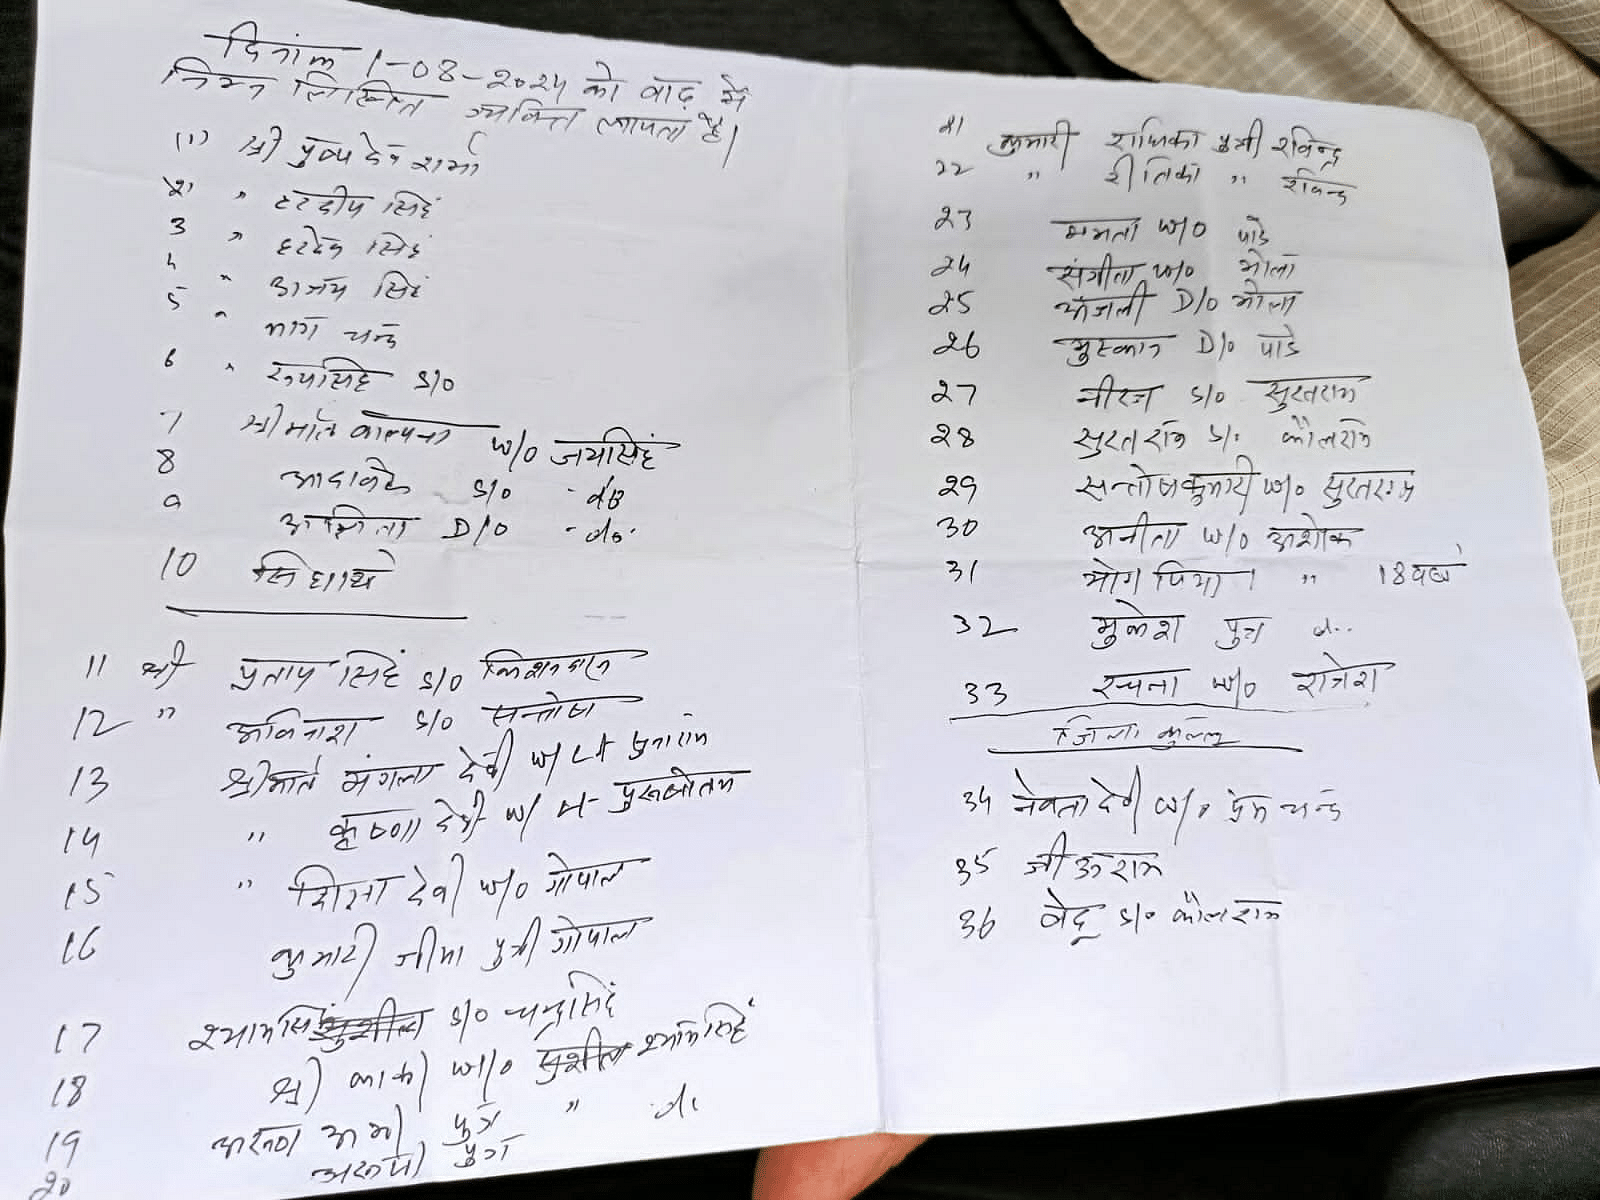 दिनांक 1-08-2024 को बाढ़ में
निम्न लिखित व्यक्ति लापता है।
(1) श्री पुष्प देव शर्मा
2) " हरदीप सिंह
3 " हरदेव सिंह
4 " अजय सिंह
5 " भाग चन्द
6 " रूपसिंह S/O
7 श्रीमति कल्पना W/O जयसिंह
8 S/O -do
9 D/O -do-
10 सिद्यार्थ
11 श्री प्रताप सिंह S/O किशनदास
12 " अविनाश S/O सन्तोष
13 श्रीमति मंगला देवी W/ Lt
14 " कृष्णा देवी W/ Lt पुरूषोतम
15 " शिला देवी W/O गोपाल
16 कुमारी जीया पुत्री गोपाल
17 श्यामसिंह S/O चन्द्रसिंह
18 W/O श्यामसिंह
19 पुत्र " do
20 पुत्र
21 कुमारी राधिका पुत्री रविन्द्र
22 " रीतिका " रविन्द्र
23 ममता W/O पांडे
24 संगीता W/O भोला
25 अंजली D/O भोला
26 मुस्कान D/O पांडे
27 नीरज S/O सुरतराम
28 सुरत राम S/o कौलराम
29 सन्तोषकुमारी W/o सुरतराम
30 अनीता W/O अशोक
31 योग प्रिया । " 18 वर्ष
32 मुकेश पुत्र d..
33 रचना W/O राजेश
जिला कुल्लू
34 देवी W/o प्रेम चन्द
35 राम
36 वेदू S/o कौलराम